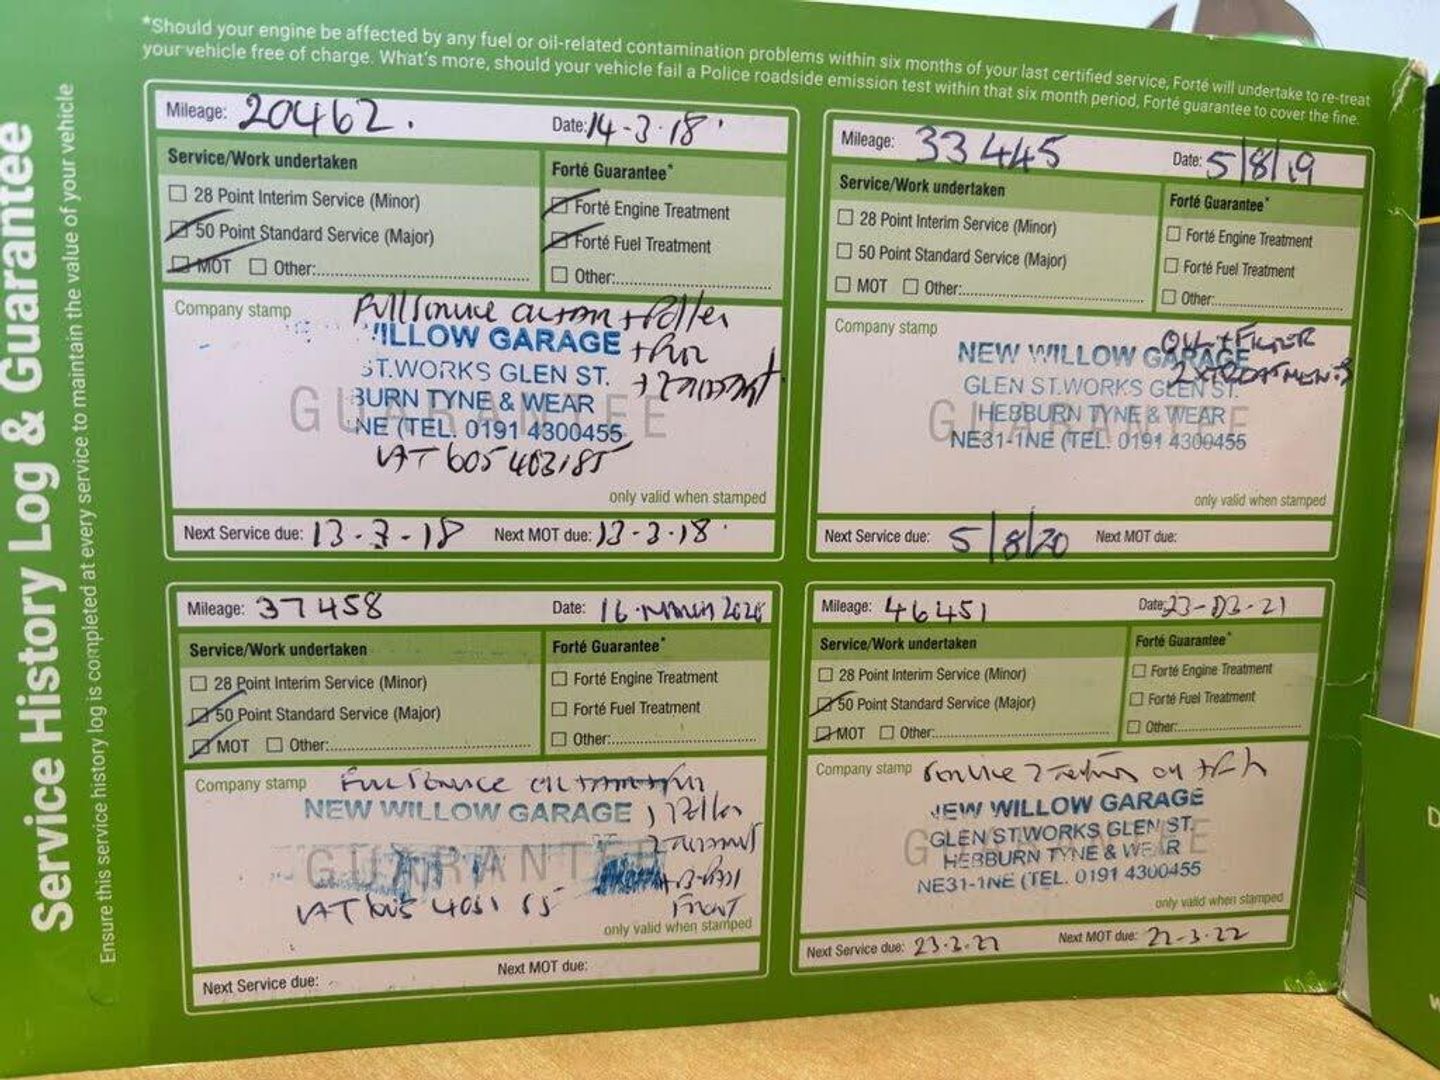 Service History Log & Guarantee
Ensure this service history log is completed at every service to maintain the value of your vehicle
*Should your engine be affected by any fuel or oil-related contamination problems within six months of your last certified service, Forté will undertake to re-treat
your vehicle free of charge. What's more, should your vehicle fail a Police roadside emission test within that six month period, Forté guarantee to cover the fine.
Mileage: 20462. Date: 14-3-18
Service/Work undertaken
Forté Guarantee*
28 Point Interim Service (Minor)
Forté Engine Treatment
50 Point Standard Service (Major)
Forté Fuel Treatment
MOT Other:
Other:
Company stamp
Full service
WILLOW GARAGE
ST.WORKS GLEN ST.
BURN TYNE & WEAR
NE (TEL. 0191 4300455
GUARANTEE
VAT 605 4031 85
only valid when stamped
Next Service due: 13-3-18 Next MOT due: 13-3-18
Mileage: 33445 Date: 5/8/19
Service/Work undertaken
Forté Guarantee*
28 Point Interim Service (Minor)
Forté Engine Treatment
50 Point Standard Service (Major)
Forté Fuel Treatment
MOT Other:
Other:
Company stamp
OIL + FILTER
NEW WILLOW GARAGE
2 x TREATMENTS
GLEN ST.WORKS GLEN ST.
HEBBURN TYNE & WEAR
GUARANTEE
NE31-1NE (TEL. 0191 4300455
only valid when stamped
Next Service due: 5/8/20 Next MOT due:
Mileage: 37458 Date: 16 March 2020
Service/Work undertaken
Forté Guarantee*
28 Point Interim Service (Minor)
Forté Engine Treatment
50 Point Standard Service (Major)
Forté Fuel Treatment
MOT Other:
Other:
Company stamp
Full Service
NEW WILLOW GARAGE
GUARANTEE
VAT 605 4031 85
FRONT
only valid when stamped
Next Service due:
Next MOT due:
Mileage: 46451 Date: 23-03-21
Service/Work undertaken
Forté Guarantee*
28 Point Interim Service (Minor)
Forté Engine Treatment
50 Point Standard Service (Major)
Forté Fuel Treatment
MOT Other:
Other:
Company stamp
Service
NEW WILLOW GARAGE
GLEN ST.WORKS GLEN ST.
GUARANTEE
HEBBURN TYNE & WEAR
NE31-1NE (TEL. 0191 4300455
only valid when stamped
Next Service due: 23-3-22 Next MOT due: 22-3-22